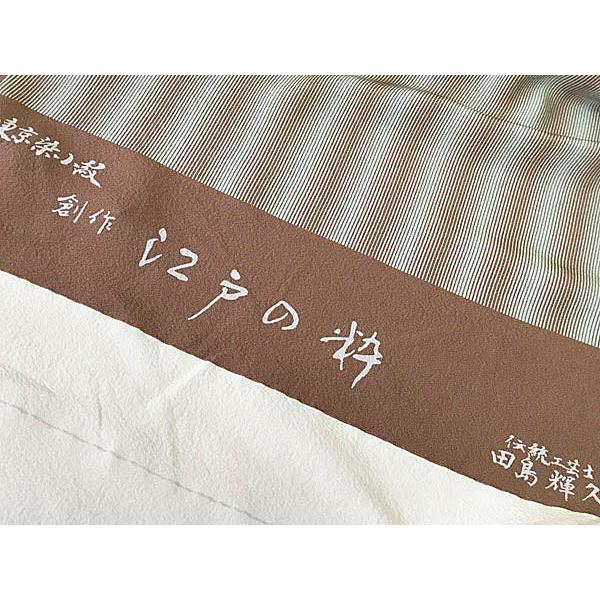 東京染小紋
創作
江戸の粋
伝統工芸士
田島輝久